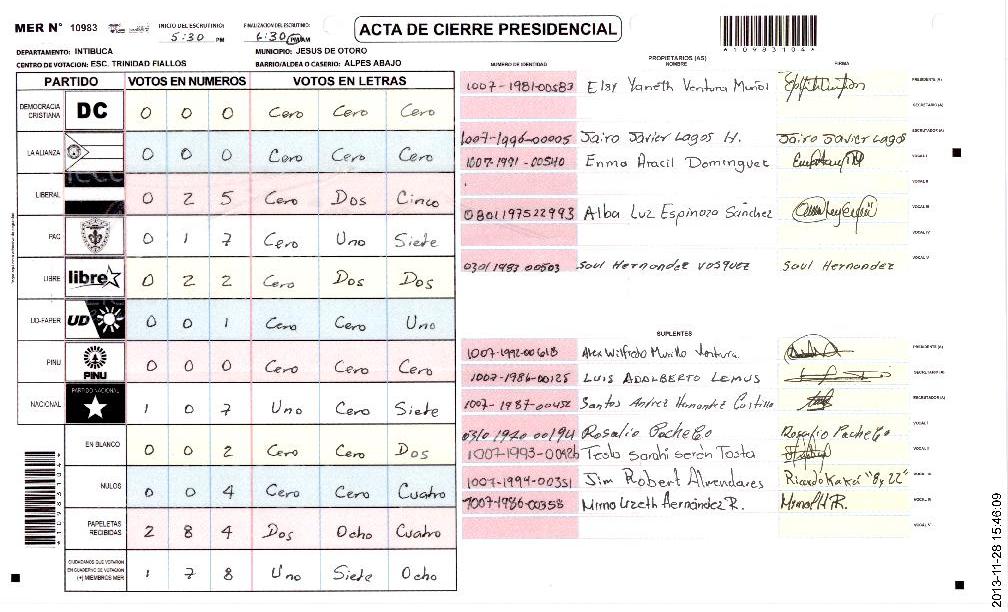 MER Nº 10983 INICIO DEL ESCRUTINIO: 5:30 PM FINALIZACION DEL ESCRUTINIO: 6:30 PM AM
ACTA DE CIERRE PRESIDENCIAL
*10983104*
DEPARTAMENTO: INTIBUCA MUNICIPIO: JESUS DE OTORO
CENTRO DE VOTACION: ESC. TRINIDAD FIALLOS BARRIO/ALDEA O CASERIO: ALPES ABAJO
PARTIDO VOTOS EN NUMEROS VOTOS EN LETRAS
DEMOCRACIA CRISTIANA DC 0 0 0 Cero Cero Cero
LA ALIANZA 0 0 0 Cero Cero Cero
LIBERAL 0 2 5 Cero Dos Cinco
PAC 0 1 7 Cero Uno Siete
LIBRE libre 0 2 2 Cero Dos Dos
UD-FAPER UD 0 0 1 Cero Cero Uno
PINU PINU 0 0 0 Cero Cero Cero
NACIONAL PARTIDO NACIONAL 1 0 7 Uno Cero Siete
EN BLANCO 0 0 2 Cero Cero Dos
NULOS 0 0 4 Cero Cero Cuatro
PAPELETAS RECIBIDAS 2 8 4 Dos Ocho Cuatro
CIUDADANOS QUE VOTARON EN CUADERNO DE VOTACION (+) MIEMBROS MER 1 7 8 Uno Siete Ocho
*10983104*
PROPIETARIOS (AS)
NUMERO DE IDENTIDAD NOMBRE FIRMA
1007-1981-00583 Elsy Yaneth Ventura Muñoz PRESIDENTE (A)
SECRETARIO (A)
1007-1996-00005 Jairo Javier Lagos H. Jairo Javier Lagos ESCRUTADOR (A)
1007-1991-00540 Enma Aracil Dominguez VOCAL I
VOCAL II
0801197522993 Alba Luz Espinoza Sánchez VOCAL III
VOCAL IV
0301 1983 00503 Saul Hernandez vasquez Saul Hernandez VOCAL V
SUPLENTES
1007-1992-00618 Alex Wilfredo Murillo Ventura. PRESIDENTE (A)
1007-1986-00125 LUIS ADALBERTO LEMUS SECRETARIO (A)
1007-1987-00452 Santos Andrez Hernandez Castillo ESCRUTADOR (A)
0310 1970 00194 Rosalio Pacheco Rosalio Pacheco VOCAL I
1007-1993-00426 Tesla Sarahi Serén Tosta VOCAL II
1007-1994-00351 Jim Robert Alvendares Ricardo Kaká "8 y 22" VOCAL III
1007-1986-00358 Mirna Lizeth Hernández R. Mirna H R. VOCAL IV
VOCAL V
2013-11-28 15:46:09